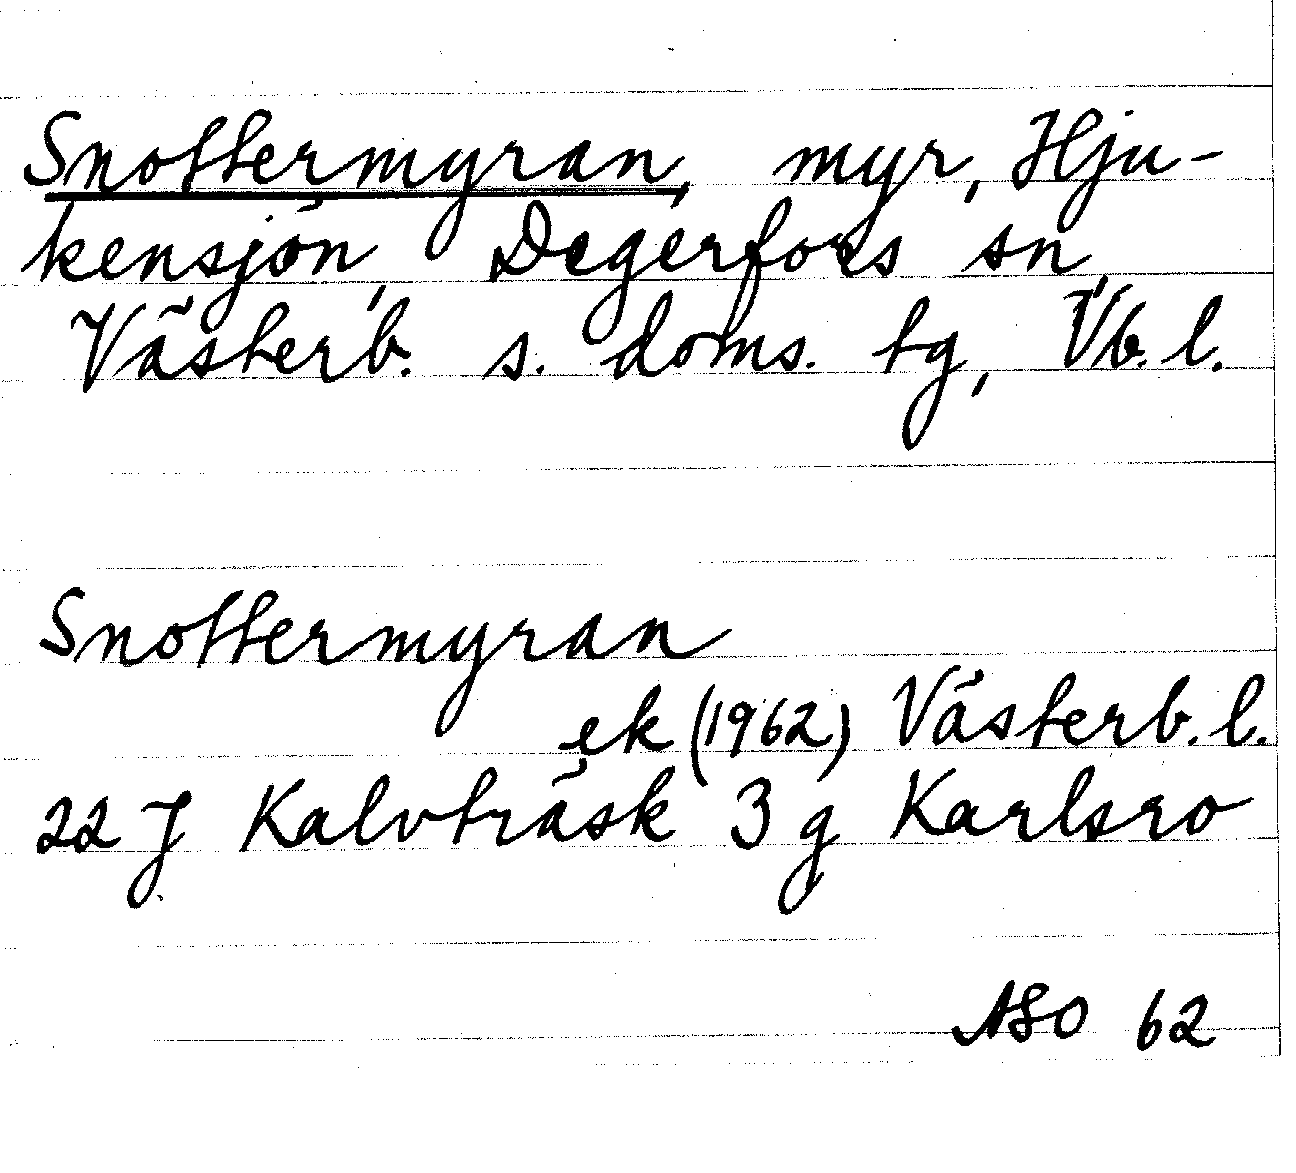 Snottermyran, myr, Hju-
kensjön, Degerfors sn,
Västerb. s. doms. tg, Vb. l.
Snottermyran
ek (1962) Västerb. l.
22 J Kalvträsk 3 g Karlsro
ASO 62